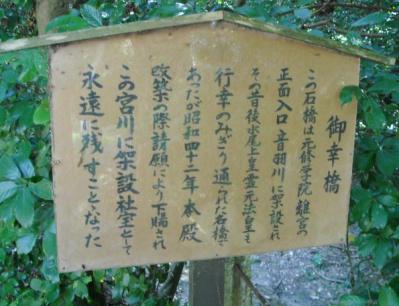 御幸橋
この石橋は元修学院離宮の
正面入口音羽川に架設され
その昔後水尾上皇霊元法皇も
行幸のみぎり通られた名橋で
あったが昭和四十二年本殿
改築の際請願により下賜され
この宮川に架設社宝として
永遠に残すことなった